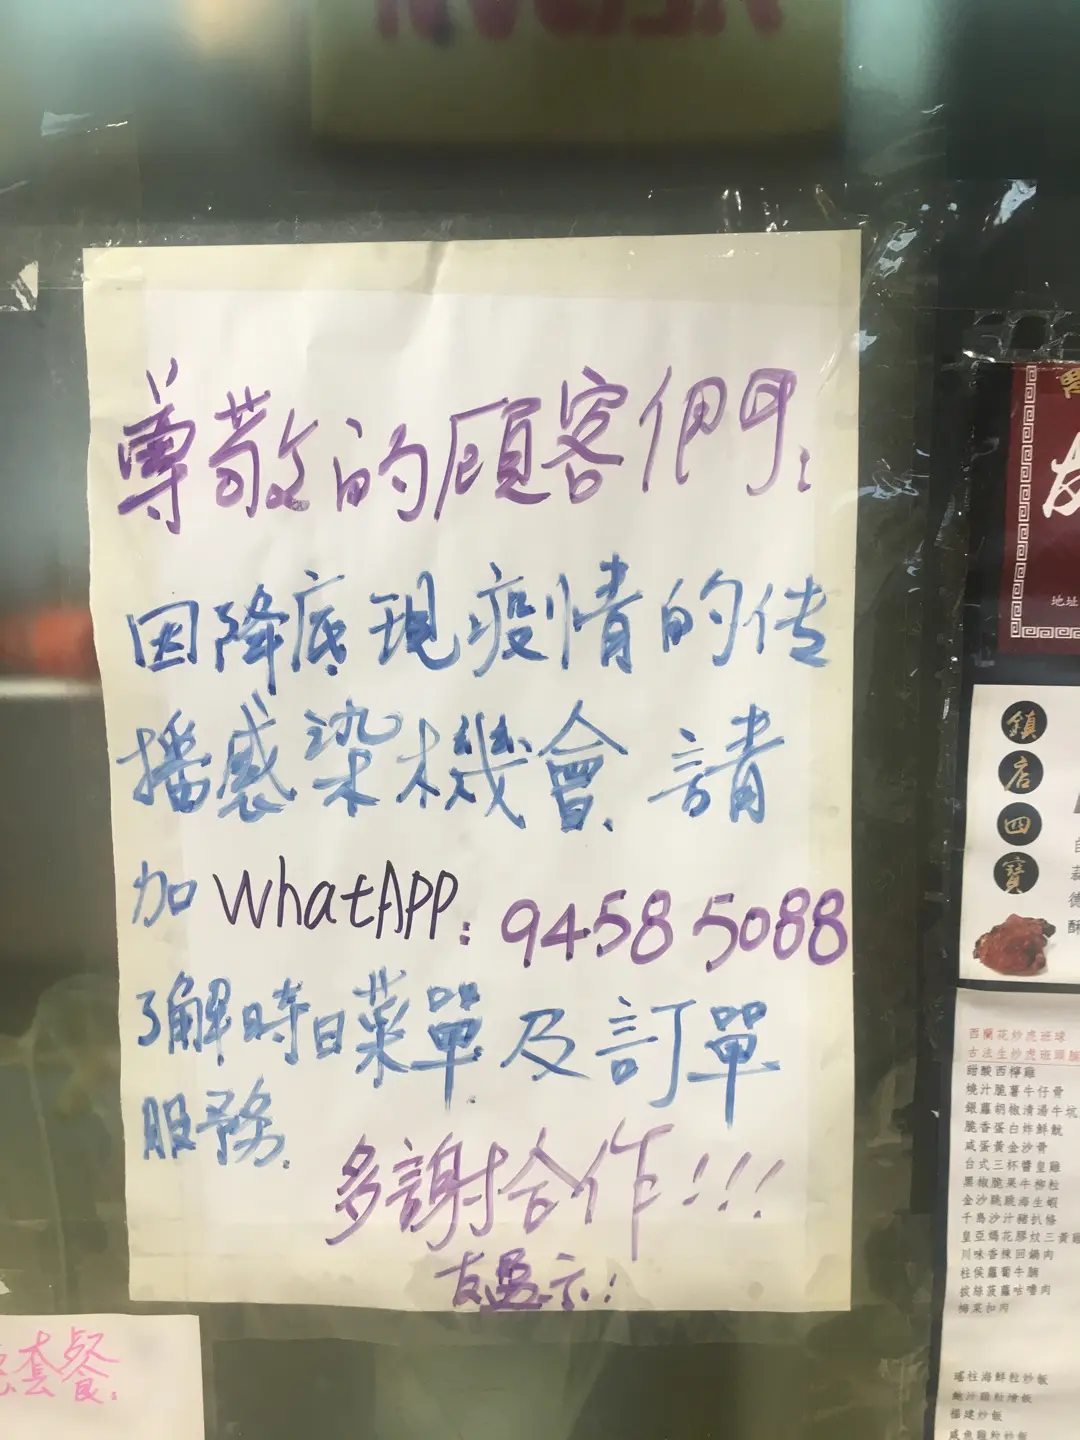 尊敬的顧客們：
因降底現疫情的传
播感染機會 請
加 WhatAPP：9458 5088
了解時日菜單及訂單
服務.
多謝合作!!!
示：
套餐。
鎮店四寶
地址
西蘭花炒虎班球
古法生炒虎班頭腩
甜酸西檸雞
燒汁脆薯牛仔骨
銀蘿胡椒清湯牛坑
脆香蛋白炸鮮魷
咸蛋黃金沙骨
台式三杯醬皇雞
黑椒脆果牛柳粒
金沙跳跳海生蝦
千島沙汁豬扒條
川味香辣回鍋肉
柱侯蘿蔔牛腩
拔絲菠蘿咕嚕肉
梅菜扣肉
瑤柱海鮮粒炒飯
鮑汁雞粒燴飯
福建炒飯
咸魚雞粒炒飯